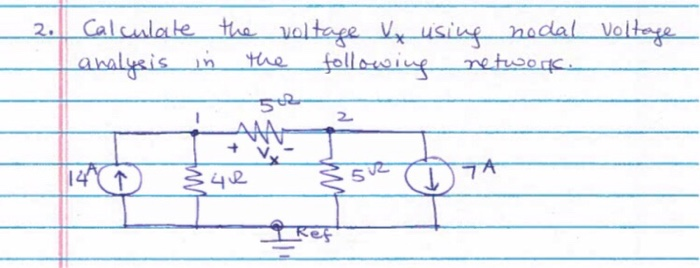 2. Calculate the voltage Vx using nodal voltage
analysis in the following network.
5Ω
1
2
+ Vx -
14A
4Ω
5Ω
7A
Ref